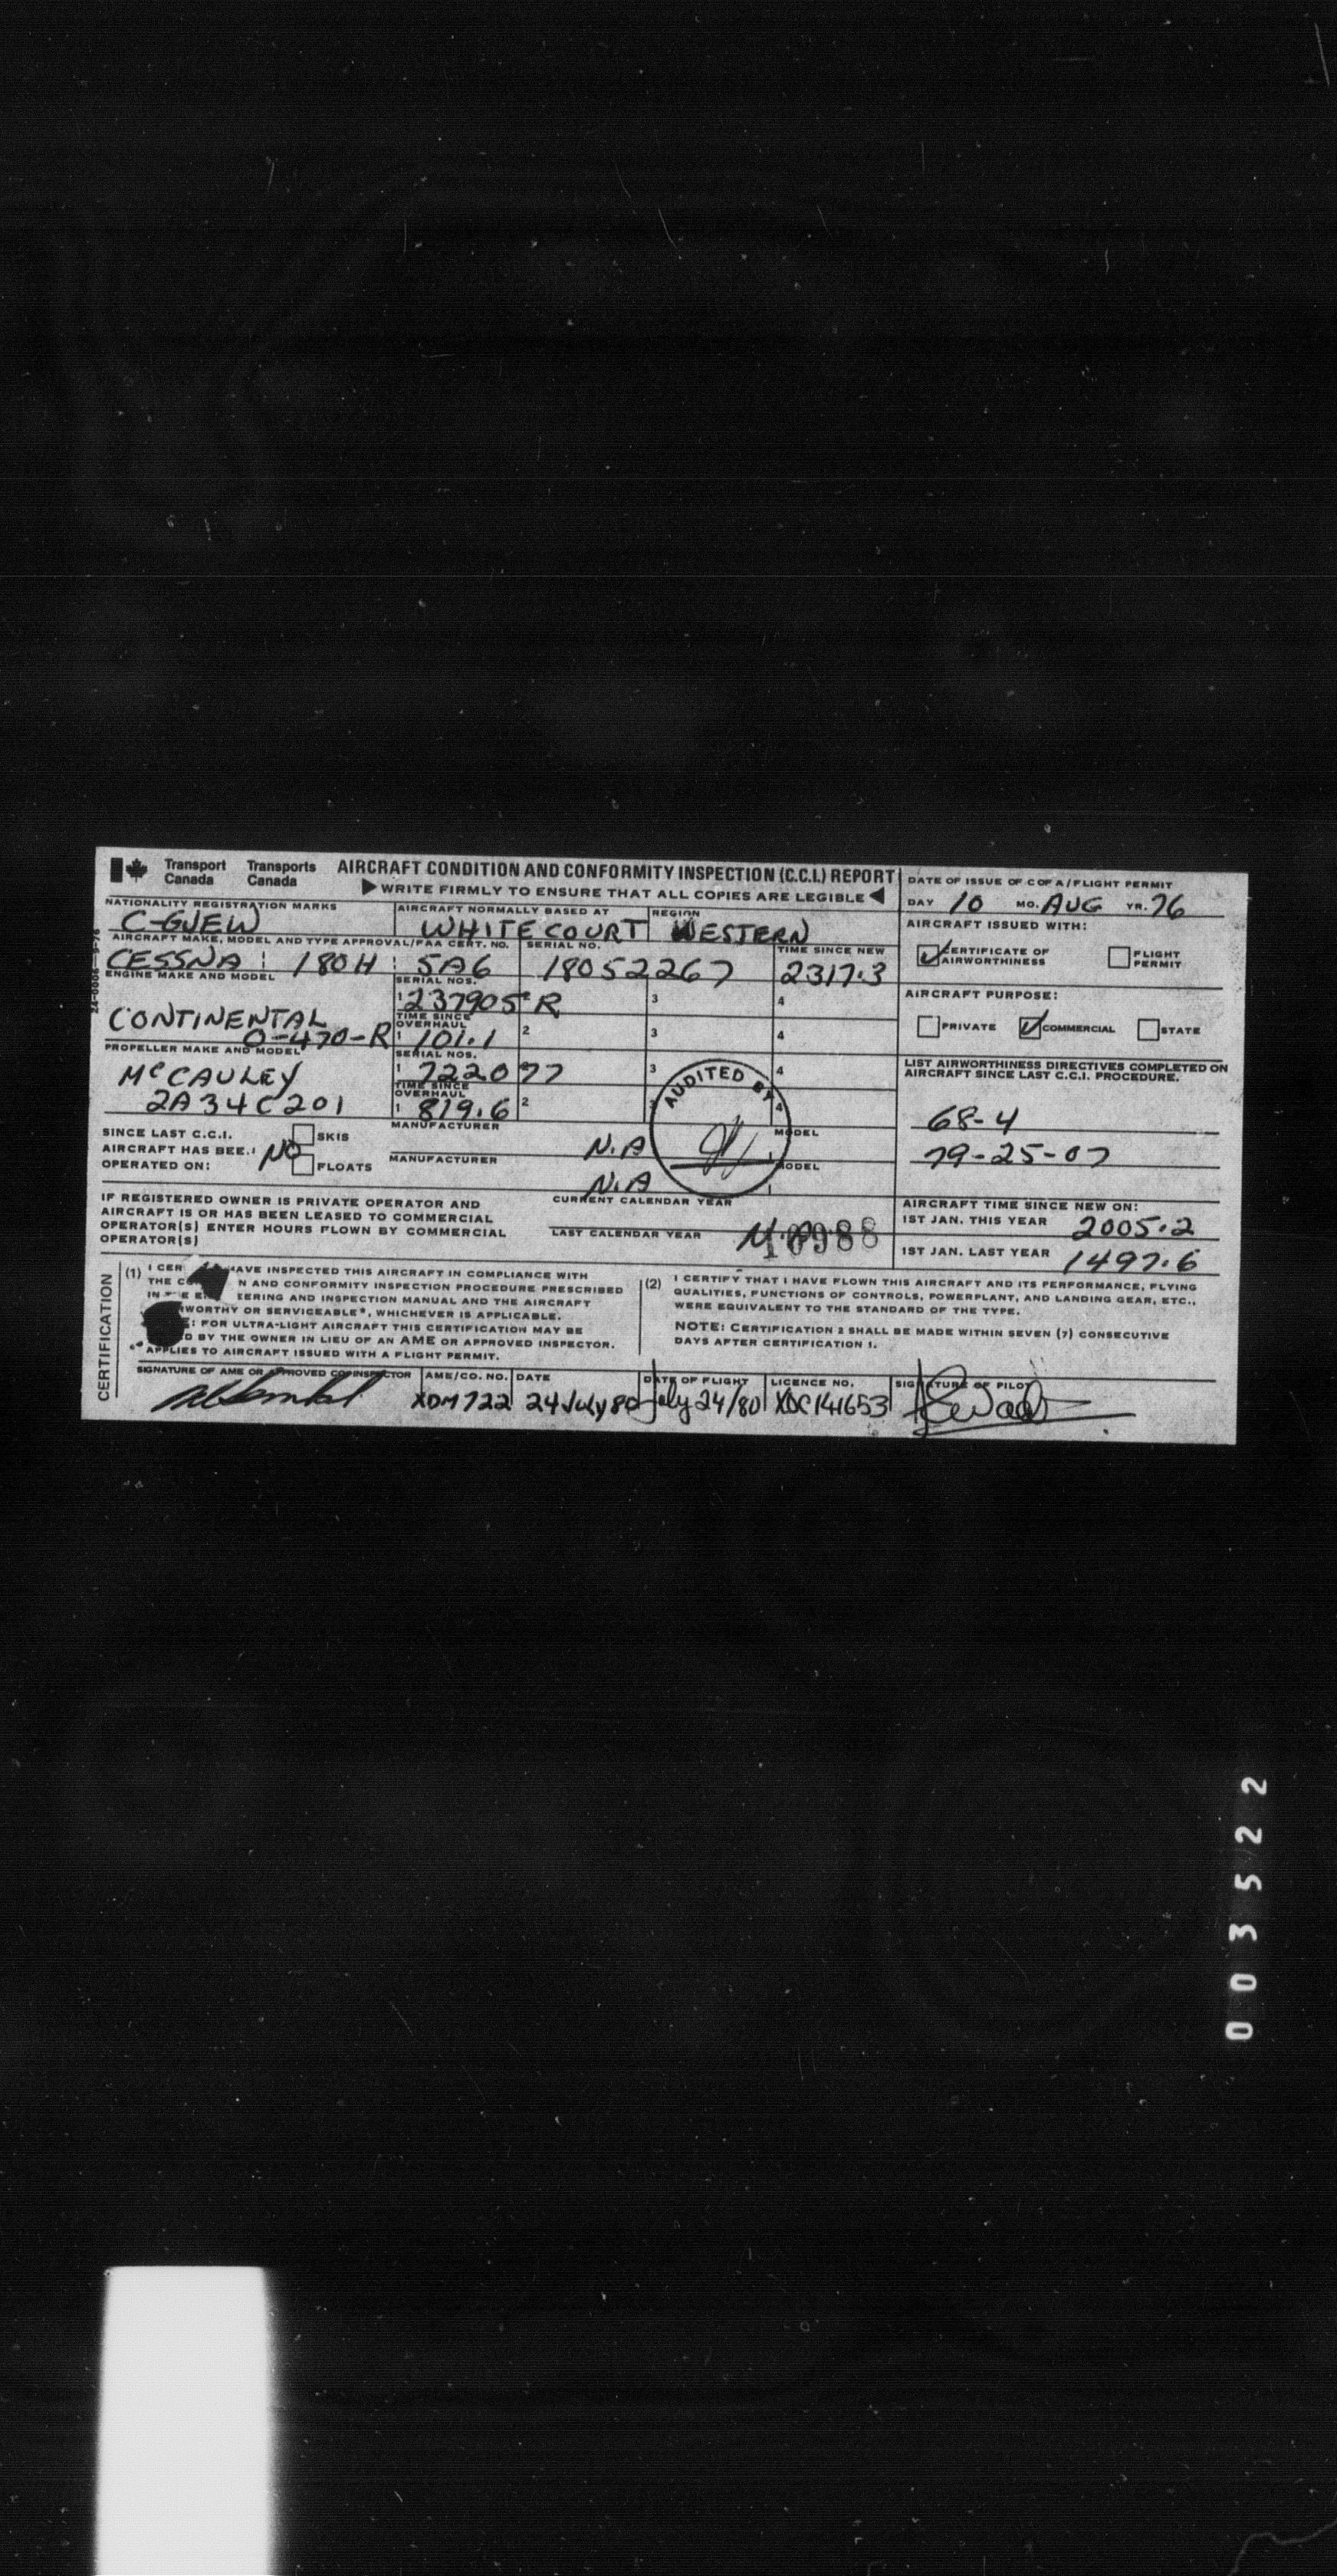 Transport Canada
Transports Canada
AIRCRAFT CONDITION AND CONFORMITY INSPECTION (C.C.I.) REPORT
▶ WRITE FIRMLY TO ENSURE THAT ALL COPIES ARE LEGIBLE ◀
DATE OF ISSUE OF C OF A/FLIGHT PERMIT
DAY 10 MO. AUG YR. 76
NATIONALITY REGISTRATION MARKS
C-GJEW
AIRCRAFT NORMALLY BASED AT
WHITECOURT
REGION
WESTERN
AIRCRAFT MAKE, MODEL AND TYPE APPROVAL/FAA CERT. NO.
CESSNA 180H 5A6
SERIAL NO.
18052267
TIME SINCE NEW
2317.3
ENGINE MAKE AND MODEL
CONTINENTAL
O-470-R
SERIAL NOS.
1 237905 R 2 3 4
TIME SINCE OVERHAUL
1 101.1 2 3 4
PROPELLER MAKE AND MODEL
McCAULEY
2A34C201
SERIAL NOS.
1 722077 3 4
TIME SINCE OVERHAUL
1 819.6 2 4
AUDITED BY
SINCE LAST C.C.I.
AIRCRAFT HAS BEE
OPERATED ON:
NO
SKIS
FLOATS
MANUFACTURER
N.A
MODEL
MANUFACTURER
N.A
MODEL
IF REGISTERED OWNER IS PRIVATE OPERATOR AND
AIRCRAFT IS OR HAS BEEN LEASED TO COMMERCIAL
OPERATOR(S) ENTER HOURS FLOWN BY COMMERCIAL
OPERATOR(S)
CURRENT CALENDAR YEAR
LAST CALENDAR YEAR
10988
AIRCRAFT ISSUED WITH:
CERTIFICATE OF AIRWORTHINESS
FLIGHT PERMIT
AIRCRAFT PURPOSE:
PRIVATE
COMMERCIAL
STATE
LIST AIRWORTHINESS DIRECTIVES COMPLETED ON
AIRCRAFT SINCE LAST C.C.I. PROCEDURE.
68-4
79-25-07
AIRCRAFT TIME SINCE NEW ON:
1ST JAN. THIS YEAR 2005.2
1ST JAN. LAST YEAR 1497.6
CERTIFICATION
(1) I CER HAVE INSPECTED THIS AIRCRAFT IN COMPLIANCE WITH
THE C N AND CONFORMITY INSPECTION PROCEDURE PRESCRIBED
IN THE E ERING AND INSPECTION MANUAL AND THE AIRCRAFT
WORTHY OR SERVICEABLE*, WHICHEVER IS APPLICABLE.
: FOR ULTRA-LIGHT AIRCRAFT THIS CERTIFICATION MAY BE
D BY THE OWNER IN LIEU OF AN AME OR APPROVED INSPECTOR.
APPLIES TO AIRCRAFT ISSUED WITH A FLIGHT PERMIT.
(2) I CERTIFY THAT I HAVE FLOWN THIS AIRCRAFT AND ITS PERFORMANCE, FLYING
QUALITIES, FUNCTIONS OF CONTROLS, POWERPLANT, AND LANDING GEAR, ETC.,
WERE EQUIVALENT TO THE STANDARD OF THE TYPE.
NOTE: CERTIFICATION 2 SHALL BE MADE WITHIN SEVEN (7) CONSECUTIVE
DAYS AFTER CERTIFICATION 1.
SIGNATURE OF AME OR APPROVED CO. INSPECTOR
AME/CO. NO.
XDM722
DATE
24 July 80
DATE OF FLIGHT
July 24/80
LICENCE NO.
XDC141653
SIGNATURE OF PILOT
003522